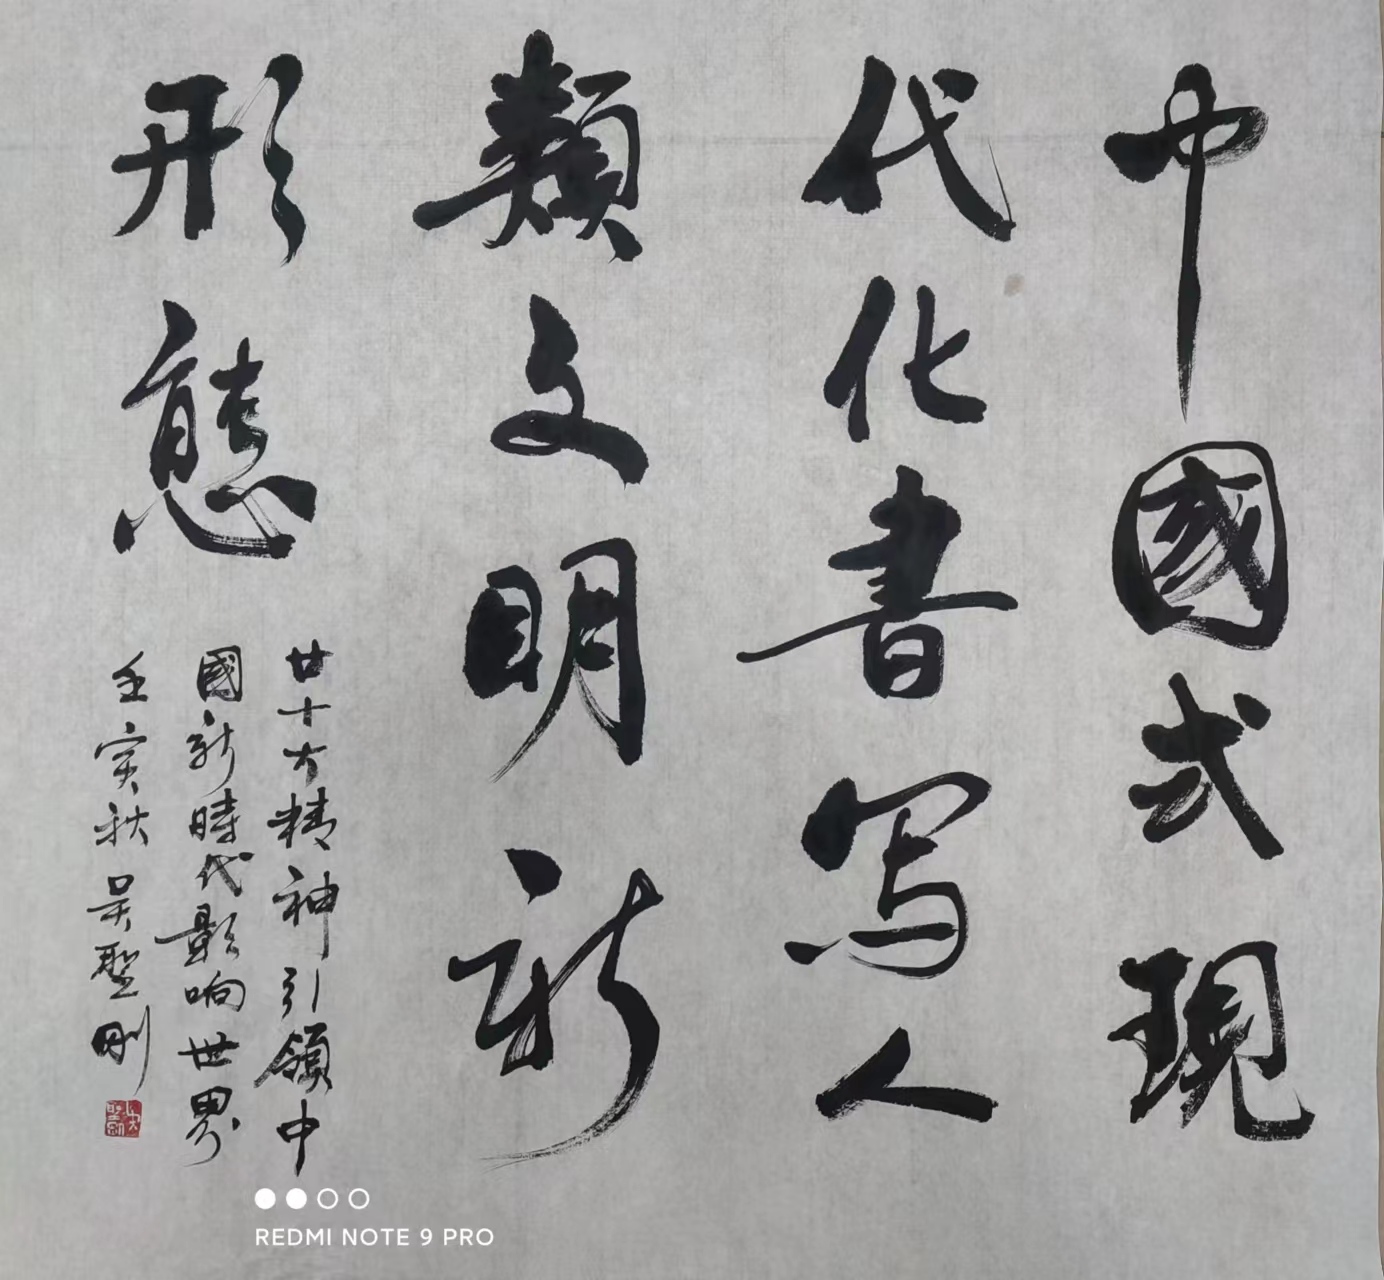 中國式現
代化書写人
類文明新
形態
廿十大精神引領中
國新時代影响世界
壬寅秋 吴聖剛
REDMI NOTE 9 PRO